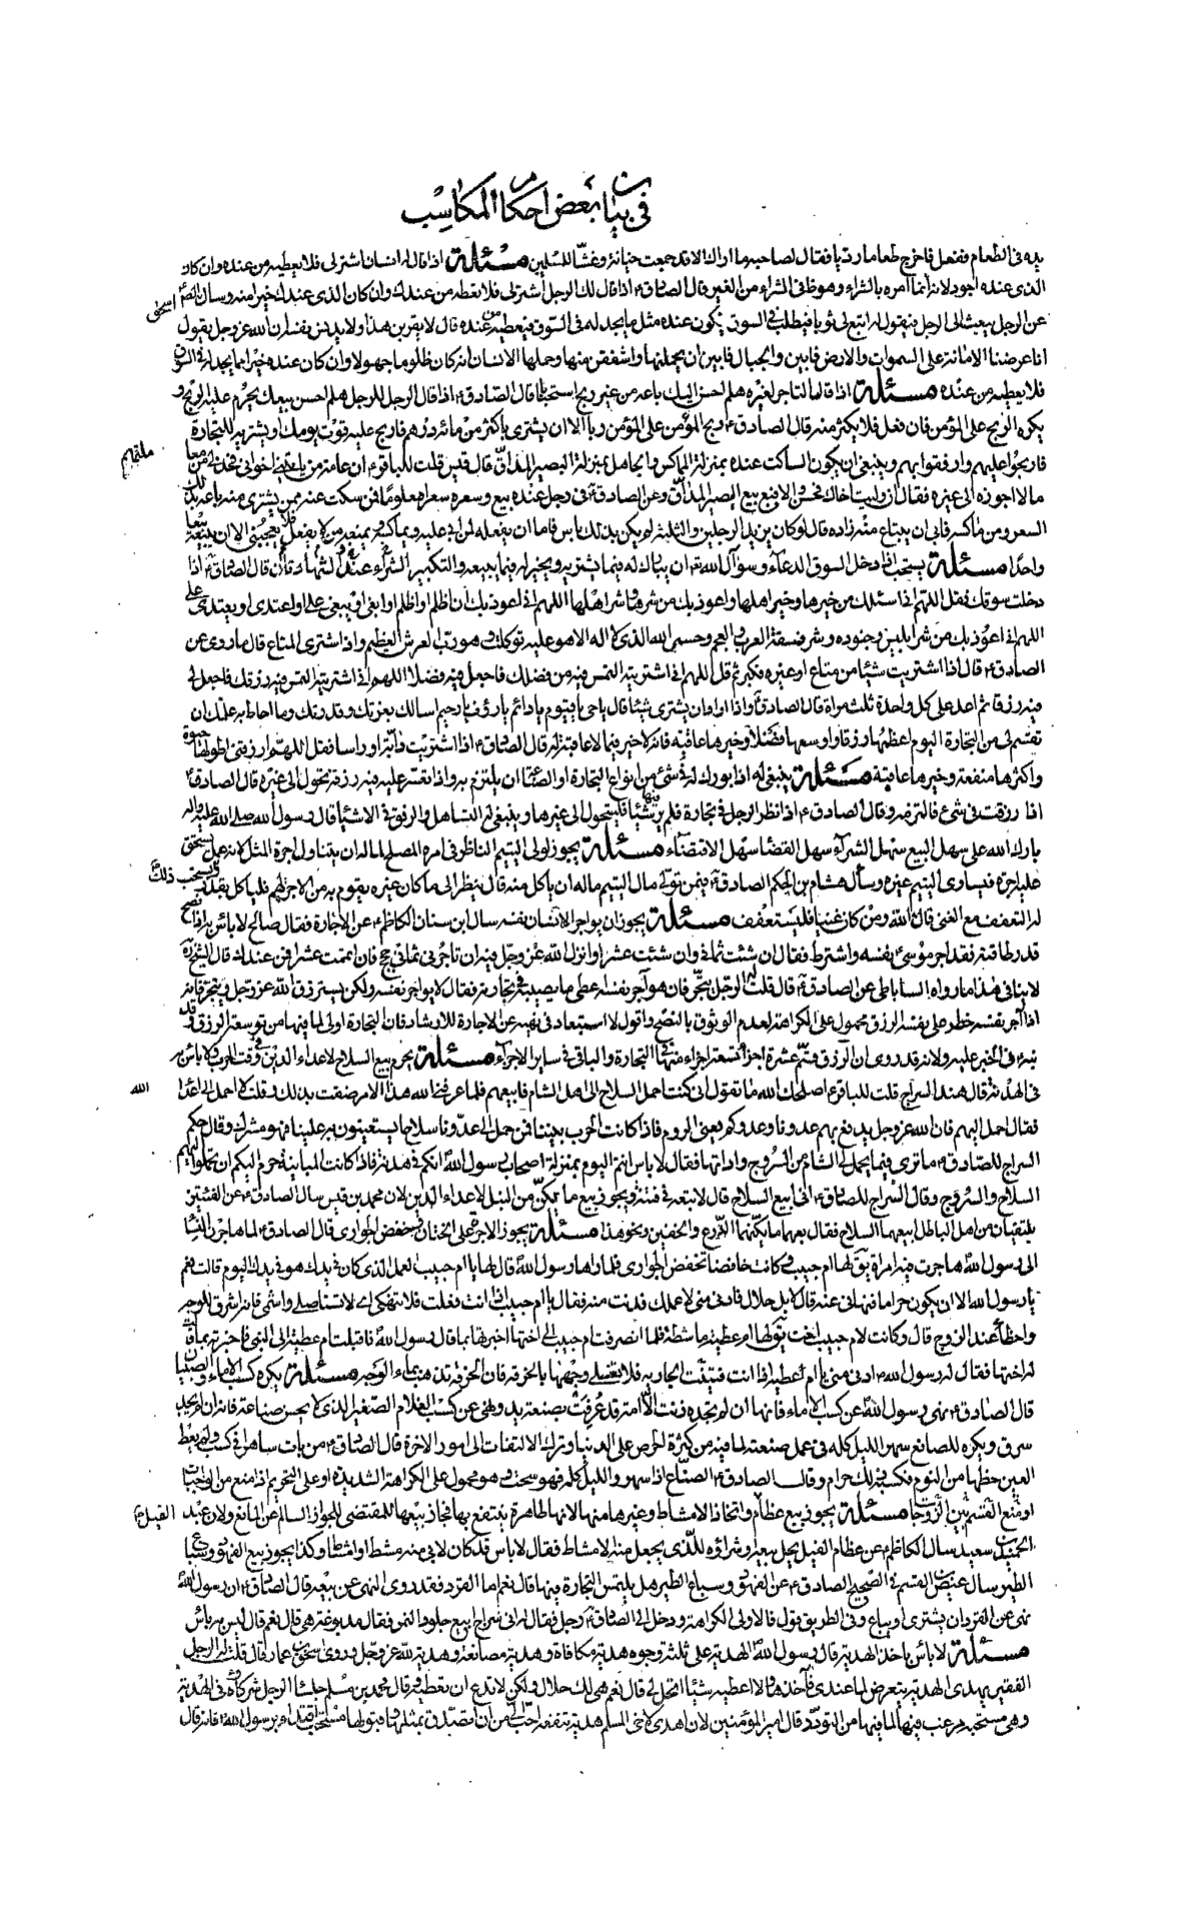 في بيان بعض احكام المكاسب
يده في الطعام ففعل فاخرج طعاما رديا فقال لصاحبه ما اراك الا قد جمعت خيانة وغشا للمسلمين مسئلة اذا قال له انسان اشتر لي فلا يعطيه من عنده وان كان
الذي عنده اجود لانه انما امره بالشراء وهو ظ في الشراء من الغير قال الصادق ع اذا قال لك الرجل اشتر لي فلا تعطه من عندك وان كان الذي عندك خيرا منه وسال اسحق الصادق ع
عن الرجل يبعث الى الرجل فيقول له ابتع لي ثوبا فيطلب في السوق فيكون عنده مثل ما يجد له في السوق فيعطيه من عنده قال لا يقربن هذا ولا يدنس نفسه ان الله عز وجل يقول
انا عرضنا الامانة على السموات والارض فابين والجبال فابين ان يحملنها واشفقن منها وحملها الانسان انه كان ظلوما جهولا وان كان عنده خيرا مما يجد له في السوق
فلا يعطيه من عنده مسئلة اذا قال التاجر لغيره هلم احسن اليك باعه من غير ربح استحبابا قال الصادق ع اذا قال الرجل للرجل هلم احسن بيعك يحرم عليه الربح و
يكره الربح على المؤمن فان فعل فلا يكثر منه قال الصادق ع ربح المؤمن على المؤمن ربا الا ان يشتري باكثر من مائة درهم فاربح عليه قوت يومك او يشتريه للتجارة
فاربحوا عليهم وارفقوا بهم وينبغي ان يكون الساكت عنده بمنزلة المماكس والجاهل بمنزلة البصير المداق قال قيس قلت للباقر ع ان عامة من ياتيني اخواني فحد لي من معاملتهم
ما لا اجوزه الى غيره فقال ان وليت اخاك فحسن والا فبع بيع البصير المداق وعن الصادق ع في رجل عنده بيع وسعره سعرا معلوما فمن سكت عنه ممن يشتري منه باعه بذلك
السعر ومن ماكسه فابى ان يبتاع منه زاده قال لو كان يزيد الرجلين والثلثة لم يكن بذلك باس فاما ان يفعله لمن ابى عليه ويماكسه ويمنعه من لا يفعل فلا يعجبني الا ان يبيعه بيعا
واحدا مسئلة يستحب اذا دخل السوق الدعاء وسؤال الله تع ان يبارك له فيما يشتريه ويخير له فيما يبيعه والتكبير عند الشراء والشهادتان قال الصادق ع اذا
دخلت سوقك فقل اللهم اني اسئلك من خيرها وخير اهلها واعوذ بك من شرها وشر اهلها اللهم اني اعوذ بك ان اظلم او اظلم او ابغي او يبغى علي او اعتدي او يعتدى علي
اللهم اني اعوذ بك من شر ابليس وجنوده وشر فسقة العرب والعجم وحسبي الله الذي لا اله الا هو عليه توكلت وهو رب العرش العظيم واذا اشترى المتاع قال ما روي عن
الصادق ع قال اذا اشتريت شيئا من متاع او غيره فكبر ثم قل اللهم اني اشتريته التمس فيه من فضلك فاجعل فيه فضلا اللهم اني اشتريته التمس فيه رزقك فاجعل لي
فيه رزقا ثم اعد على كل واحدة ثلث مرات قال الصادق ع واذا اراد ان يشتري شيئا قال يا حي يا قيوم يا دائم يا رؤف يا رحيم اسالك بعزتك وقدرتك وما احاط به علمك ان
تقسم لي من التجارة اليوم اعظمها رزقا واوسعها فضلا وخيرها عاقبة فانه لا خير فيما لا عاقبة له قال الصادق ع اذا اشتريت دابة او راسا فقل اللهم ارزقني اطولها حيوة
واكثرها منفعة وخيرها عاقبة مسئلة ينبغي له اذا بورك له في شئ من انواع التجارة او الصناعة ان يلتزم به واذا تعسر عليه فيه رزقه يحول الى غيره قال الصادق ع
اذا رزقت في شئ فالزمه وقال الصادق ع اذا نظر الرجل في تجارة فلم ير فيها شيئا فليتحول الى غيرها وينبغي له التساهل والرفق في الاشياء قال رسول الله صلى الله عليه واله
بارك الله على سهل البيع سهل الشراء سهل القضاء سهل الاقتضاء مسئلة يجوز لولي اليتيم الناظر في امره المصلح لماله ان يتناول اجرة المثل لانه عمل يستحق
عليه اجرة فيساوي اليتيم غيره وسال هشام بن الحكم الصادق ع فيمن تولى مال اليتيم ماله ان ياكل منه قال ينظر الى ما كان غيره يقوم به من الاجر لهم فلياكل بقدر ذلك ويستحب
له التعفف مع الغنى قال الله ومن كان غنيا فليستعفف مسئلة يجوز ان يواجر الانسان نفسه سال ابن سنان الكاظم ع عن الاجارة فقال صالح لا باس به اذا نصح
قدر طاقته فقد اجر موسى ع نفسه واشترط فقال ان شئت ثماني وان شئت عشرا وانزل الله عز وجل فيه ان تاجرني ثماني حجج فان اتممت عشرا فمن عندك قال الشيخ ره
لا ينافي هذا ما رواه الساباطي عن الصادق ع قال قلت له الرجل يتجر فان هو آجر نفسه اعطى ما يصيب في تجارته فقال لا يواجر نفسه ولكن يسترزق الله عز وجل ويتجر فانه
اذا آجر نفسه خطر على نفسه الرزق محمول على الكراهة لعدم الوثوق بالنصح واقول لا استبعاد في نهيه عن الاجارة للارشاد فان التجارة اولى لما فيها من توسعة الرزق وقد
نبه ع في الخبر عليه ولانه قد روي ان الرزق قسم عشرة اجزاء تسعة اجزاء منها في التجارة والباقي في ساير الاجزاء مسئلة يحرم بيع السلاح لاعداء الدين في وقت الحرب ولا باس به
في الهدنة قال هند السراج قلت للباقر ع اصلحك الله ما تقول اني كنت احمل السلاح الى اهل الشام فابيعهم فلما عرفني الله هذا الامر ضقت بذلك وقلت لا احمل الى اعداء الله
فقال احمل اليهم فان الله عز وجل يدفع بهم عدونا وعدوكم يعني الروم فاذا كانت الحرب بيننا فمن حمل الى عدونا سلاحا يستعينون به علينا فهو مشرك وقال حكم
السراج للصادق ع ما ترى فيما يحمل الى الشام من السروج واداتها فقال لا باس انتم اليوم بمنزلة اصحاب رسول الله ص انكم في هدنة فاذا كانت المباينة حرم عليكم ان تحملوا اليهم
السلاح والسروج وقال السراج للصادق ع اني ابيع السلاح قال لا تبعه في فتنة ويجوز بيع ما يكن من النبل لاعداء الدين لان محمد بن قيس سال الصادق ع عن الفئتين
يلتقيان من اهل الباطل ابيعهما السلاح فقال بعهما ما يكنهما الدرع والخفين ونحو هذا مسئلة يجوز الاجرة على الختان وخفض الجواري قال الصادق ع لما هاجرن النساء
الى رسول الله ص هاجرت فيه امراة يق لها ام حبيب وكانت خافضة تخفض الجواري فلما راها رسول الله ص قال لها يا ام حبيب العمل الذي كان في يدك هو في يدك اليوم قالت نعم
يا رسول الله الا ان يكون حراما فتنهاني عنه قال لا بل حلال فادني مني لاعلمك فدنت منه فقال يا ام حبيب اذا انت فعلت فلا تنهكي اي لا تستاصلي واشمي فانه اشرق للوجه
واحظى عند الزوج قال وكانت لام حبيب اخت يق لها ام عطية ماشطة فلما انصرفت ام حبيب الى اختها اخبرتها بما قال رسول الله ص فاقبلت ام عطية الى النبي ص فاخبرته بما قالت
له اختها فقال لها رسول الله ص ادني مني يا ام عطية اذا انت قينت الجارية فلا تغسلي وجهها بالخرقة فان الخرقة تذهب بماء الوجه مسئلة يكره كسب الاماء والصبيان
قال الصادق ع نهى رسول الله ص عن كسب الاماء فانها ان لم تجده زنت الا امة قد عرفت بصنعة يد ونهى عن كسب الغلام الصغير الذي لا يحسن صناعة فانه ان لم يجد
سرق ويكره للصانع سهر الليل كله في عمل صنعته لما فيه من كثرة الحرص على الدنيا وترك الالتفات الى امور الاخرة قال الصادق ع من بات ساهرا في كسب ولم يعط
العين حظها من النوم فكسبه ذلك حرام وقال الصادق ع الصناع اذا سهروا الليل كله فهو سحت وهو محمول على الكراهة الشديدة او على التحريم اذا منع من الواجبات
او منع القسم بين الزوجات مسئلة يجوز بيع عظام الفيل واتخاذ الامشاط وغيرها منها لانها طاهرة ينتفع بها فجاز بيعها للمقتضي للجواز السالم عن المانع ولان عبد
الحميد بن سعيد سال الكاظم ع عن عظام الفيل يحل بيعه وشراؤه للذي يجعل منه الامشاط فقال لا باس قد كان لابي منه مشط او امشاط وكذا يجوز بيع الفهود وسباع
الطير سال عيص بن القسم في الصحيح الصادق ع عن الفهود وسباع الطير هل يلتمس التجارة فيها قال نعم اما القرد فقد روي النهي عن بيعه قال الصادق ع ان رسول الله ص
نهى عن القرد ان يشترى او يباع وفي الطريق قول فالاولى الكراهة ودخل الى الصادق ع رجل فقال له اني سراج ابيع جلود النمر فقال مدبوغة هي قال نعم قال ليس به باس
مسئلة لا باس باخذ الهدية قال رسول الله ص الهدية على ثلثة وجوه هدية مكافاة وهدية مصانعة وهدية لله عز وجل وروى اسحق بن عمار قال قلت له الرجل
الفقير يهدي الهدية يتعرض لما عندي فآخذها ولا اعطيه شيئا اتحل لي قال نعم هي لك حلال ولكن لا تدع ان تعطيه وقال محمد بن مسلم جلساء الرجل شركاؤه في الهدية
وهي مستحبة مرغب فيها لما فيها من التودد قال امير المؤمنين لان اهدي لاخي المسلم هدية تنفعه احب الي من ان اتصدق بمثلها وقبولها مستحب اقتداء برسول الله ص فانه قال